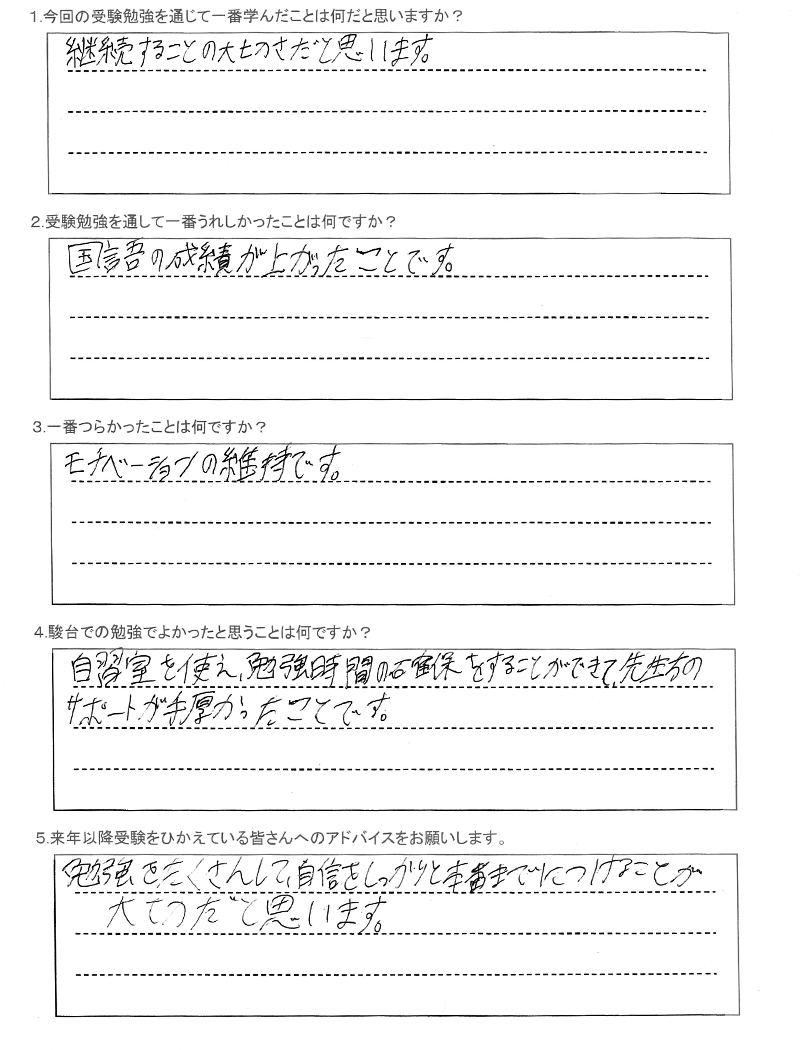 1.今回の受験勉強を通じて一番学んだことは何だと思いますか？
継続することの大切さだと思います。
2.受験勉強を通して一番うれしかったことは何ですか？
国語の成績が上がったことです。
3.一番つらかったことは何ですか？
モチベーションの維持です。
4.駿台での勉強でよかったと思うことは何ですか？
自習室を使え、勉強時間の確保をすることができて、先生方の
サポートが手厚かったことです。
5.来年以降受験をひかえている皆さんへのアドバイスをお願いします。
勉強をたくさんして、自信をしっかりと本番までにつけることが
大切だと思います。